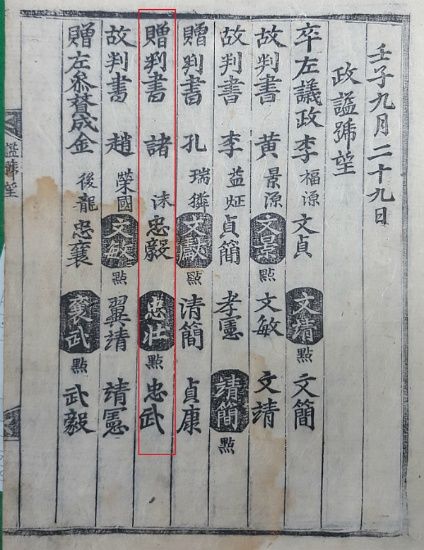 壬子九月二十九日
政諡號望
卒左議政李福源 文貞 文靖點 文簡
故判書黃景源 文景點 文敏 文清
故判書李益炡 貞簡 孝憲 靖簡點
贈判書孔瑞獜 文獻點 清簡 貞康
贈判書諸沫 忠毅 忠壯點 忠武
故判書趙榮國 文敏點 翼靖 靖憲
贈左叅贊成金後龍 忠襄 襄武點 武毅
諡號望